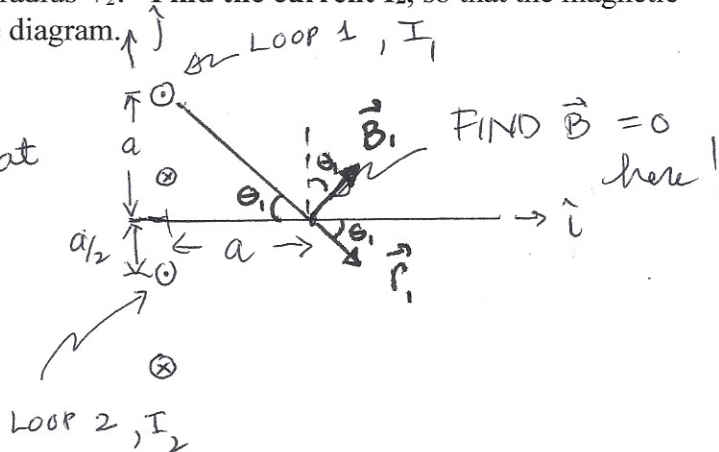 radius a/2. Find the current I₂, so that the magnetic
e diagram.
ĵ
LOOP 1, I₁
at
a
θ₁
θ₁
B⃗₁
FIND B⃗ = 0
here!
î
a/2
a
θ₁
r⃗₁
LOOP 2, I₂